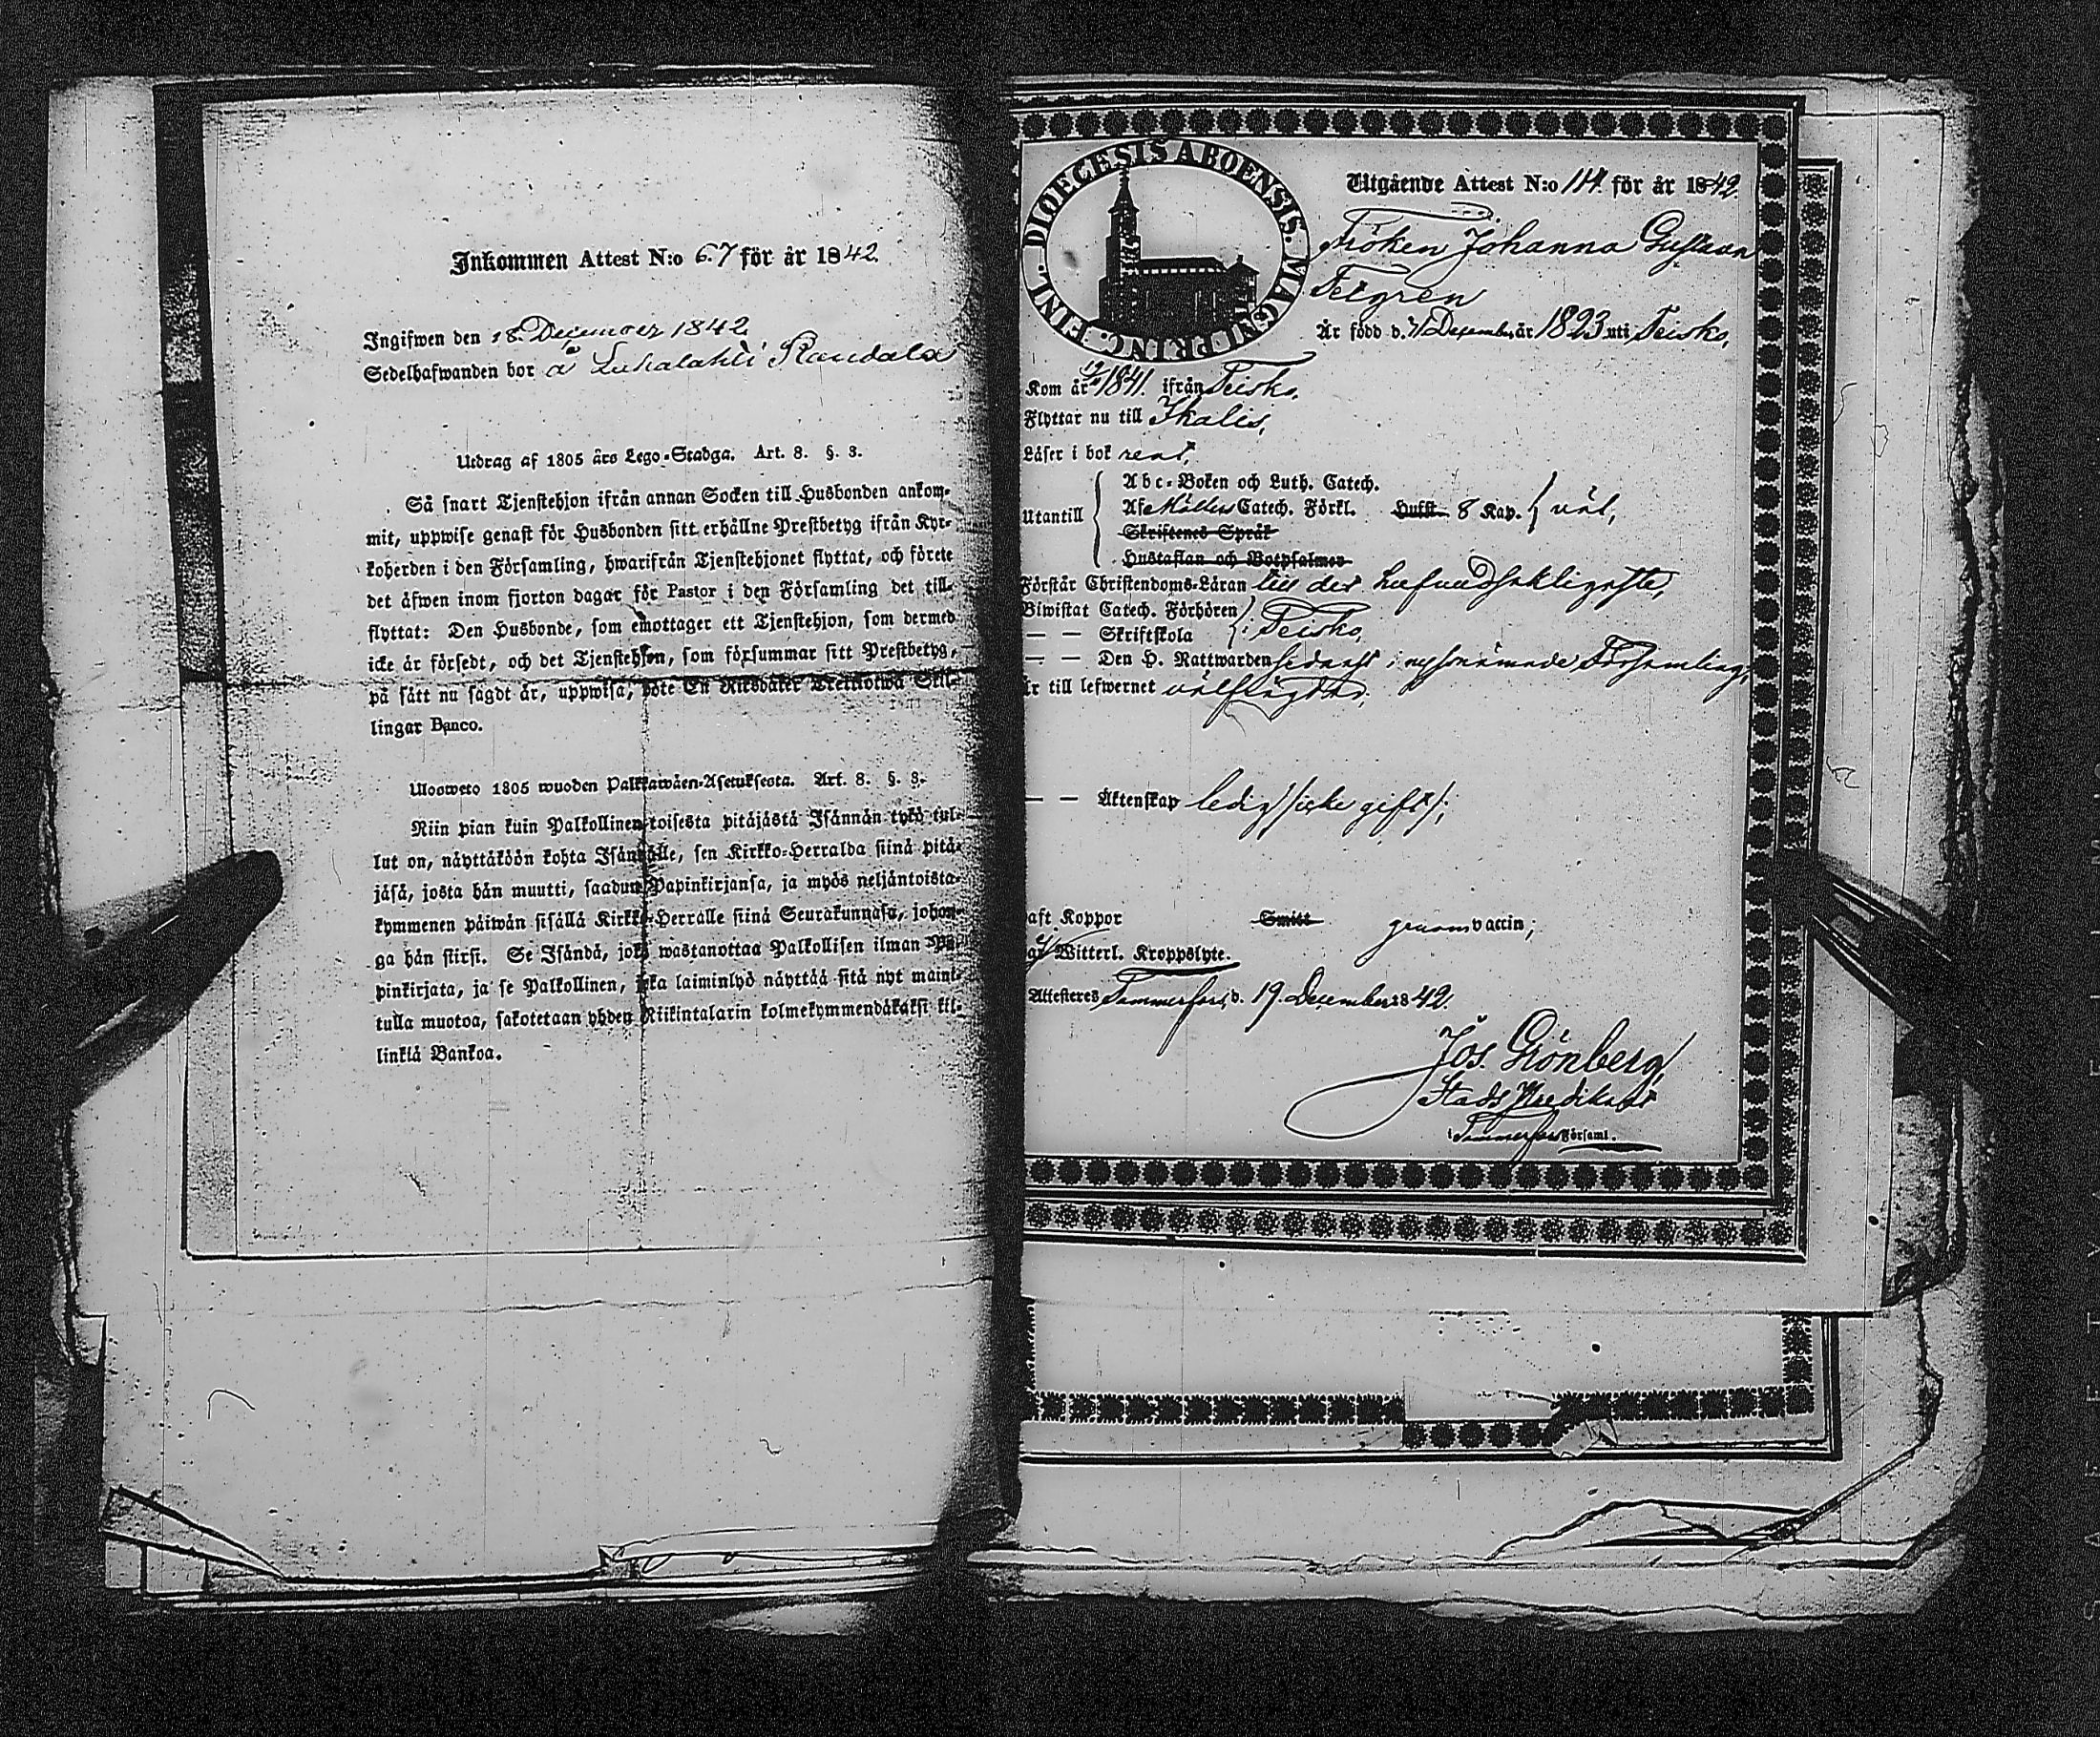 Inkommen Attest N:o 67 för år 1842.
Ingifwen den 18. December 1842
Sedelhafwanden bor å Luhalahti Randala
Utdrag af 1805 års Lego-Stadga. Art. 8. §. 3.
Så snart Tjenstehjon ifrån annan Socken till Husbonden ankom-
mit, uppwise genast för Husbonden sitt erhållne Prestbetyg ifrån Kyr-
koherden i den Församling, hwarifrån Tjenstehjonet flyttat, och förete
det äfwen inom fjorton dagar för Pastor i den Församling det till-
flyttat: Den Husbonde, som emottager ett Tjenstehjon, som dermed
icke är försedt, och det Tjenstehjon, som försummar sitt Prestbetyg,
på sätt nu sagdt är, uppwisa, böte En Riksdaler Trettiotwå Skil-
lingar Banco.
Ulosweto 1805 wuoden Palkkawäen-Asetuksesta. Art. 8. §. 3.
Niin pian kuin Palkollinen toisesta pitäjästä Isännän tykö tul-
lut on, näyttäköön kohta Isännälle, sen Kirkko-Herralda siinä pitä-
jäsä, josta hän muutti, saadun Papinkirjansa, ja myös neljäntoista-
kymmenen päiwän sisällä Kirkko-Herralle siinä Seurakunnasa, johon-
ga hän siirsi. Se Isändä, joka wastanottaa Palkollisen ilman Pa-
pinkirjata, ja se Palkollinen, joka laiminlyö näyttää sitä nyt maini-
tulla muotoa, sakotetaan yhden Riikintalarin kolmekymmendäkaksi kil-
linkiä Bankoa.
DIOECESIS ABOENSIS. MAGNI PRINC. FINL.
Utgående Attest N:o 114. för år 1842
Fröken Johanna Gustava
Feigren
Är född d. 7 December år 1823 uti Teisko,
Kom år 1841. ifrån Teisko,
Flyttar nu till Ikalis,
Läser i bok rent,
Utantill
Abc-Boken och Luth. Catech.
Catech. Förkl. Hufst. 8 Kap. väl,
Skriftenes Språk
Hustaflan och Botpsalmer
Förstår Christendoms-Läran till det
Biwistat Catech. Förhören
— — Skriftskola Teisko,
— — Den H. Nattwarden sednast i nyssnämnde Församling,
är till lefwernet välfrägdad,
— — Äktenskap ledig /:icke gift:/;
haft Koppor Smitt genom vaccin;
Witterl. Kroppslyte.
Attesteres Tammerfors, d. 19. December 1842.
Jos. Grönberg,
Stads Predikant
i Tammerfors Församl.